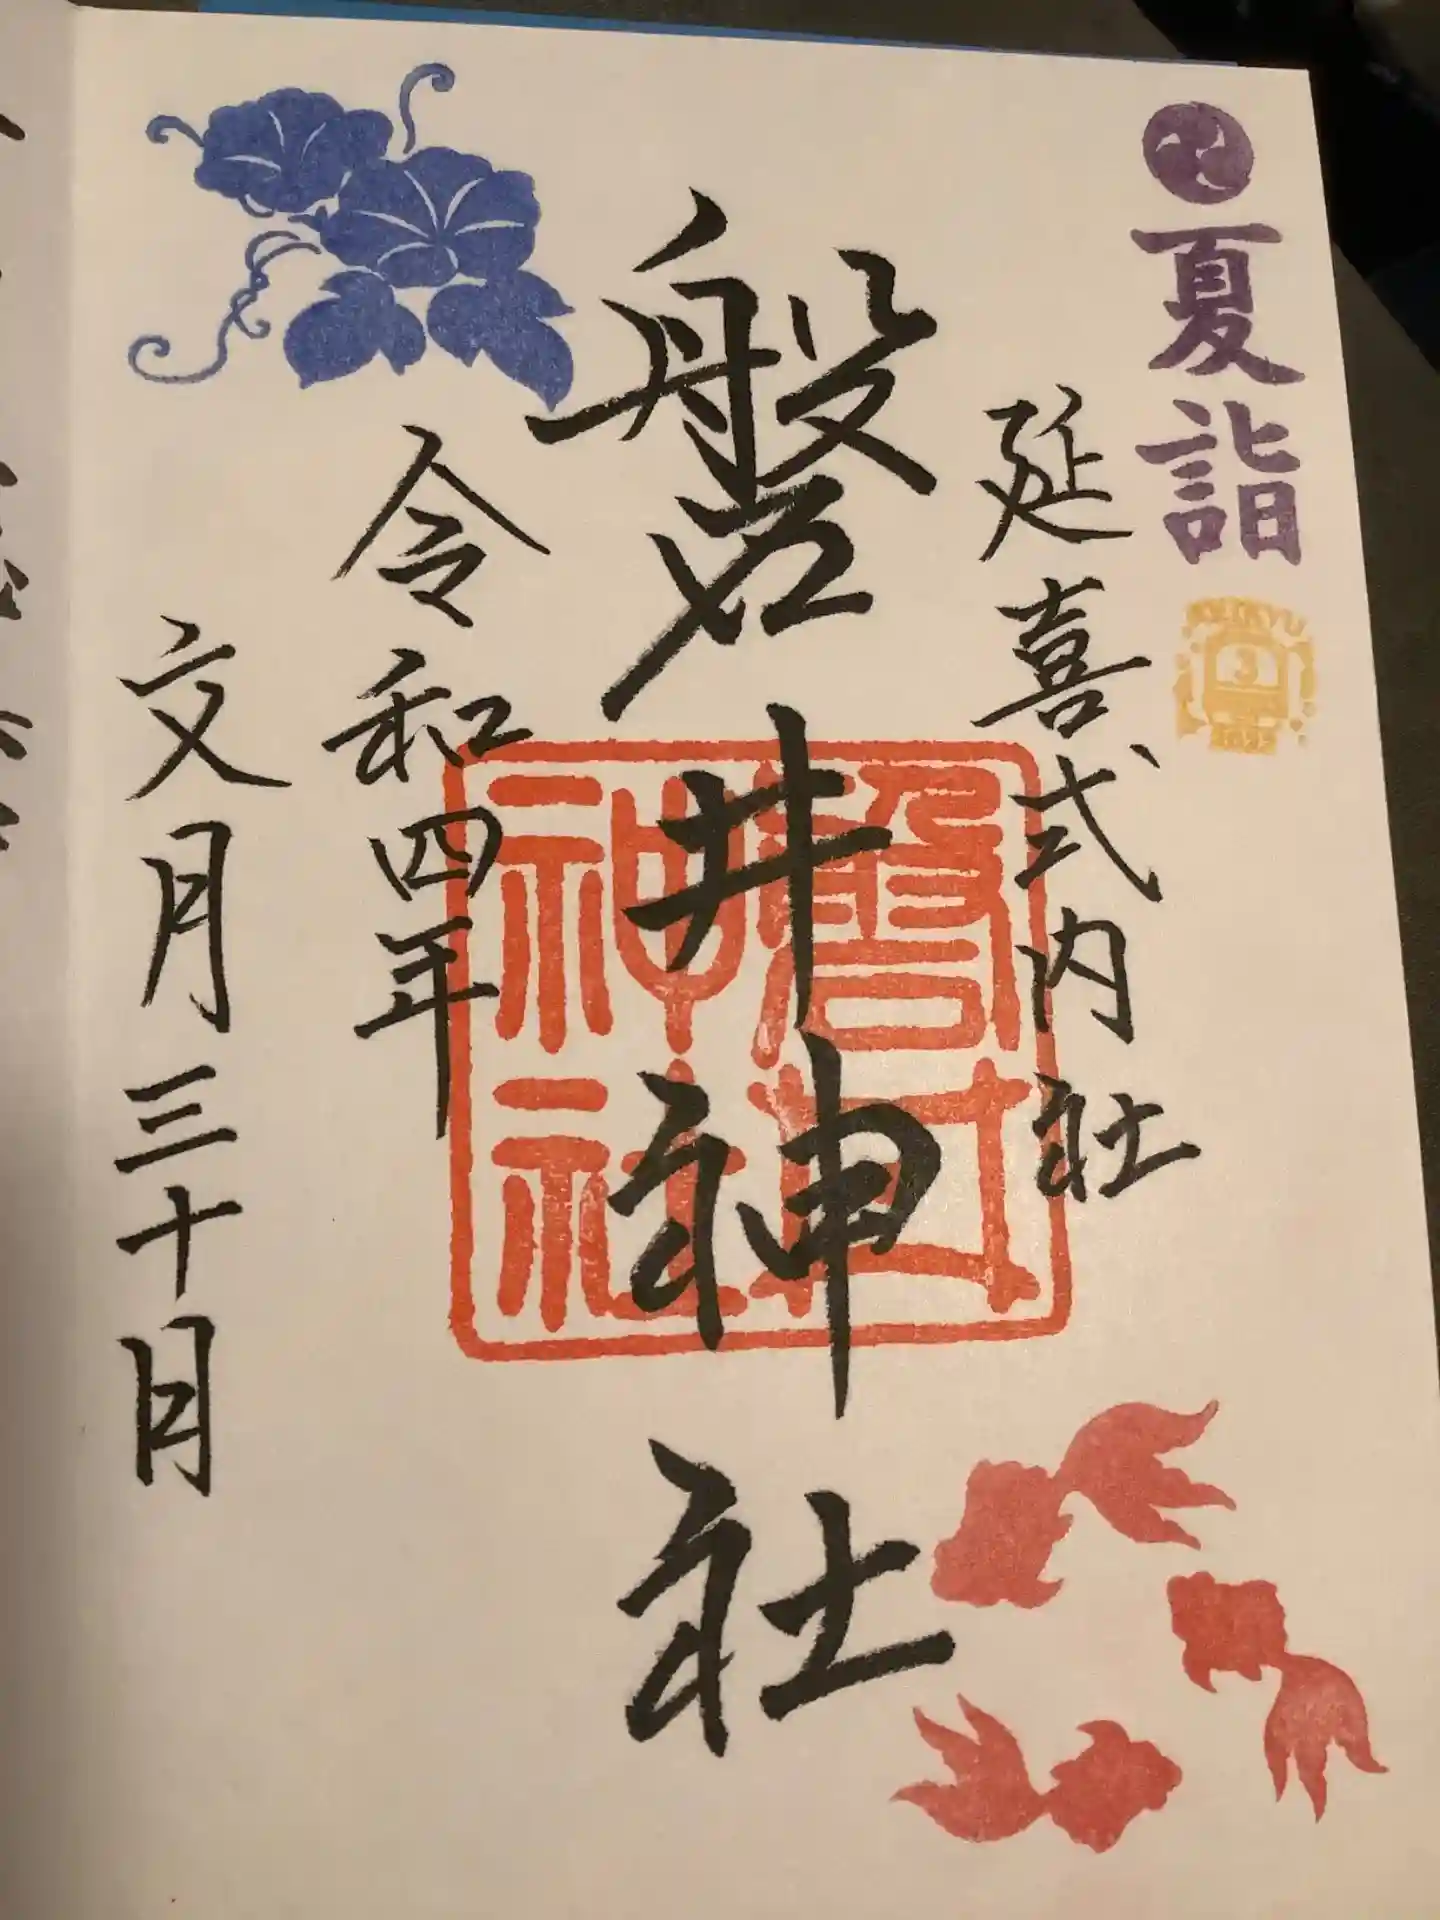 夏詣
KEIKYU
3
2022
延喜式内社
磐井神社
磐井
神社
令和四年
文月三十日